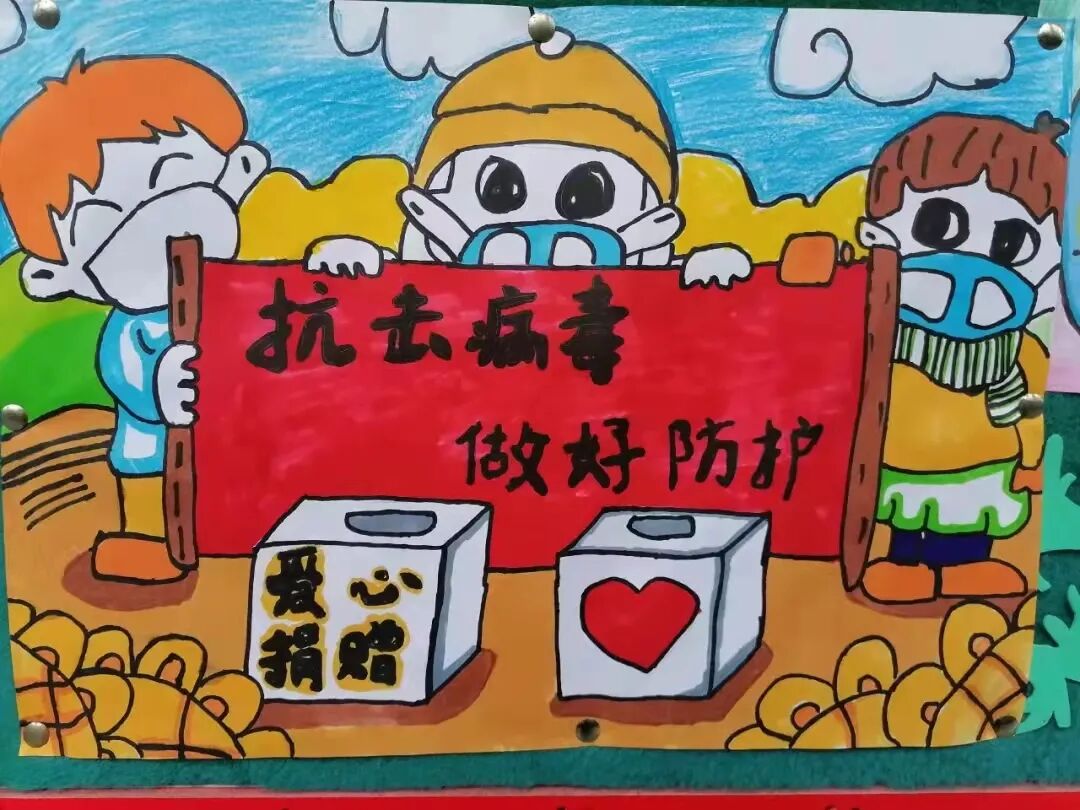 抗去病毒
做好防护
爱心
捐赠